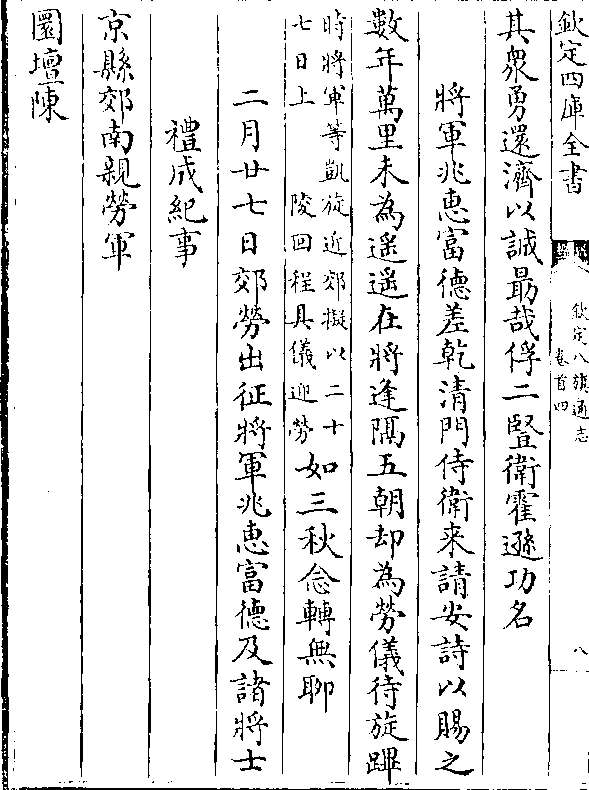 欽定四庫全書
欽定八旗通志
卷首四
八
其衆勇還濟以誠勗哉俘二豎衛霍遜功名
將軍兆惠富德差乾清門侍衛來請安詩以賜之
數年萬里未為遥遥在將逢隔五朝却為勞儀待旋蹕
時將軍等凱旋近郊擬以二十
七日上　陵回程具儀迎勞
如三秋念轉無聊
二月廿七日郊勞出征將軍兆惠富德及諸將士
禮成紀事
京縣郊南親勞軍
圜壇陳